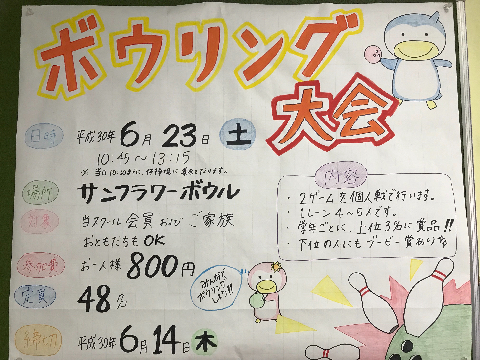 ボウリング
大会
日時 平成30年 6月23日 土
10:45～13:15
場所 サンフラワーボウル
対象 当スクール会員および ご家族
おともだちも OK
参加費 お一人様 800円
定員 48名
締切 平成30年 6月14日 木
みんなで
ボウリング
しよう!!
内容
・2ゲームを個人戦で行います。
・1レーン4～5人です。
・学年ごとに、上位3名に賞品!!
下位の人にもブービー賞あり